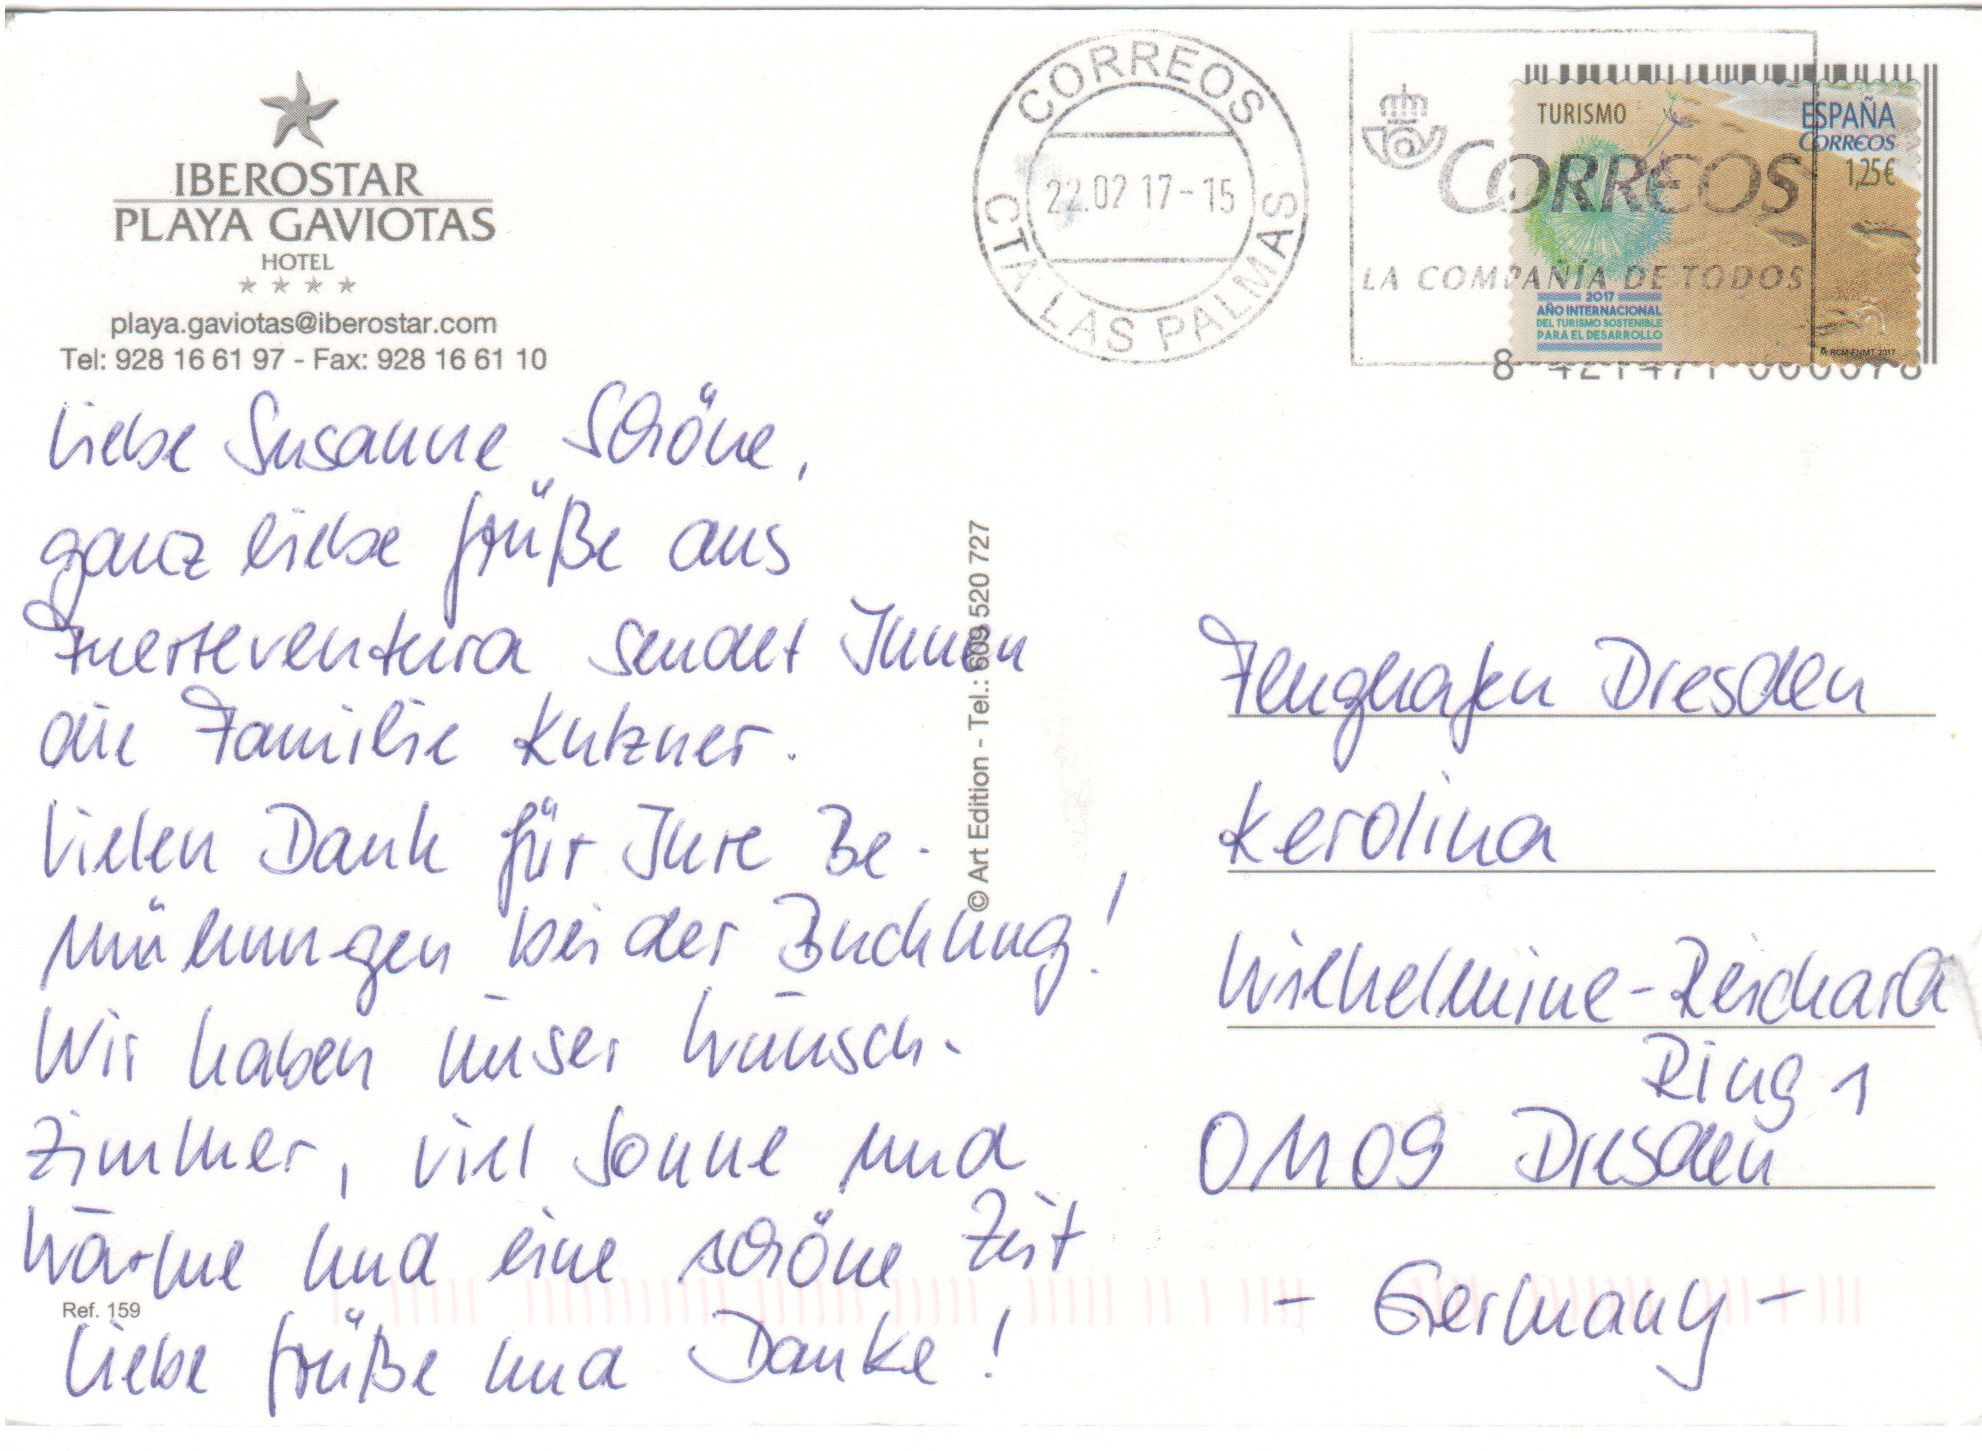 IBEROSTAR
PLAYA GAVIOTAS
HOTEL
playa.gaviotas@iberostar.com
Tel: 928 16 61 97 - Fax: 928 16 61 10
Liebe Susanne Schöne,
ganz liebe Grüße aus
Fuerteventura sendet Ihnen
die Familie Kutzner.
Vielen Dank für Ihre Be-
mühungen bei der Buchung!
Wir haben unser Wunsch-
zimmer, viel Sonne und
Wärme und eine schöne Zeit
Ref. 159
Liebe Grüße und Danke!
© Art Edition - Tel.: 609 520 727
CORREOS
22.02 17-15
CTA LAS PALMAS
CORREOS
LA COMPAÑÍA DE TODOS
TURISMO
ESPAÑA
CORREOS
1,25€
2017
AÑO INTERNACIONAL
DEL TURISMO SOSTENIBLE
PARA EL DESARROLLO
RCM-FNMT 2017
8 421471 000078
Flughafen Dresden
Kerolina
Wilhelmine-Reichard
Ring 1
01109 Dresden
- Germany -